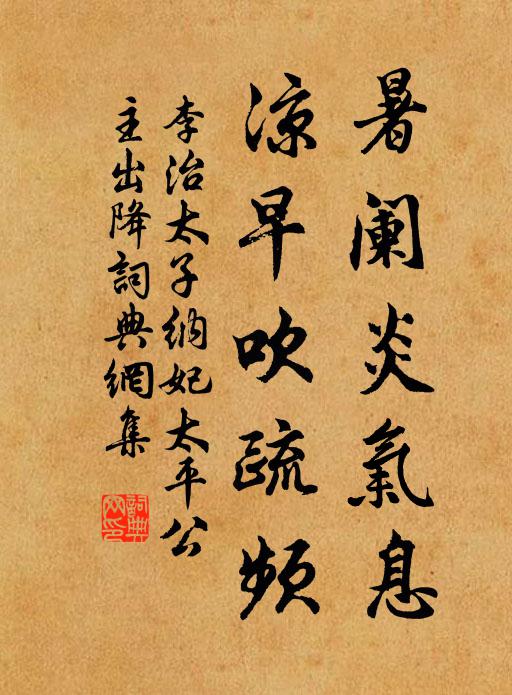 暑阑炎氣息
凉早吹疏頻
李治太子納妃太平公
主出降詞典網集
詞典網印